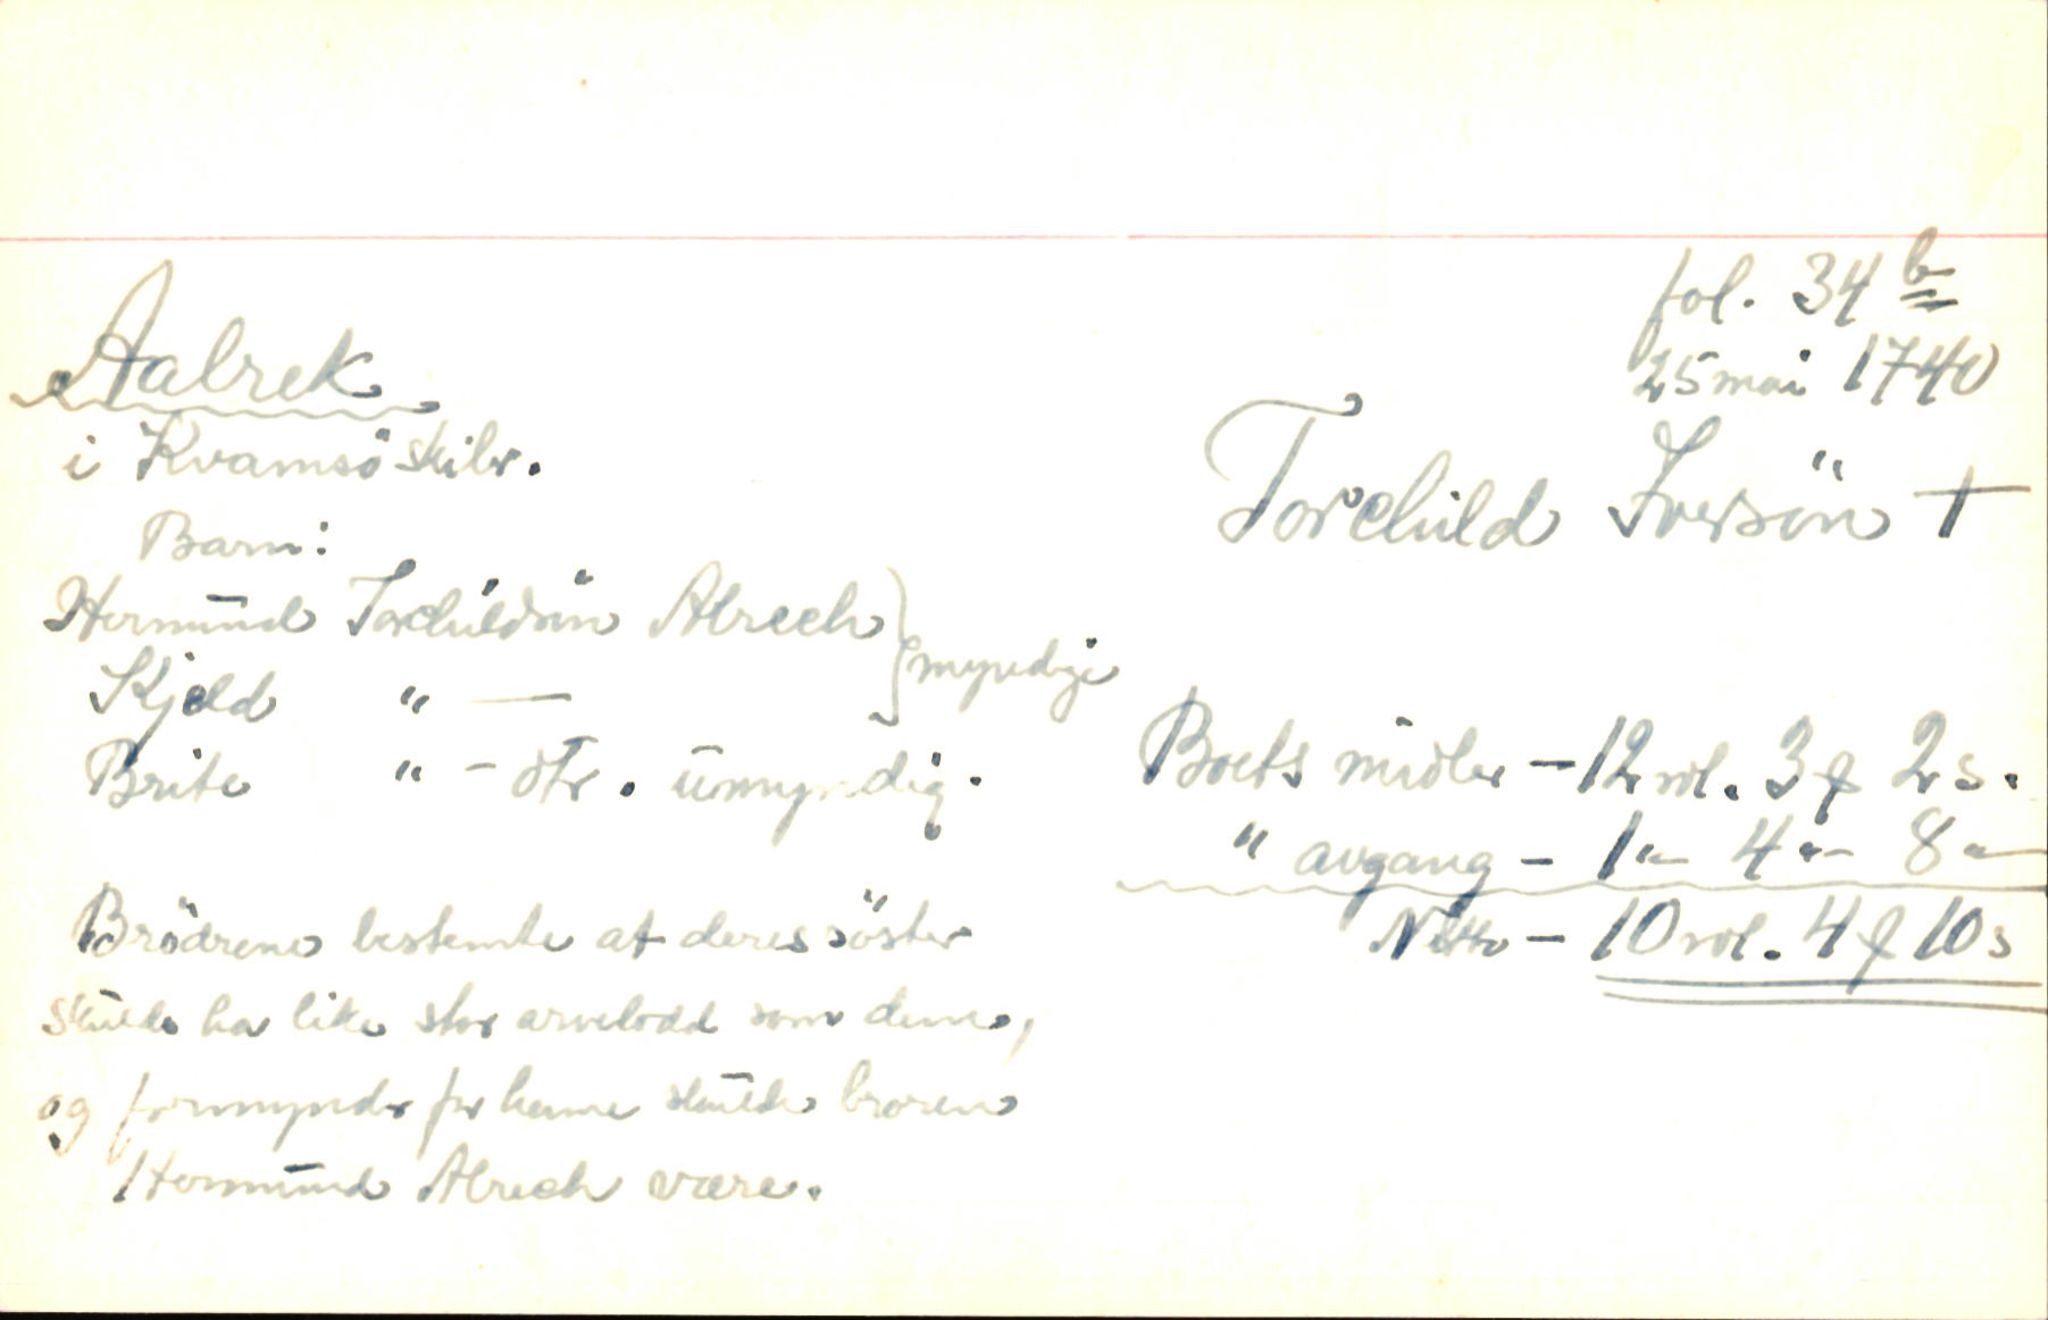 fol. 34 b
25 mai 1740
Aalrek
i Kvamsö skibr.
Torchild Iversön †
Barn:
Hermund Torchildsön Alrech } myndige
Kjeld " —
Brite " - dtr. umyndig.
Boets midler - 12 rdl. 3 ƒ 2 s.
" avgang - 1 "- 4 "- 8 "-
Netto - 10 rdl. 4 ƒ 10 s
Brödrene bestemte at deres söster
skulde ha like stor arvelodd som dem,
og formynder for henne skulde broren
Hermund Alrech være.